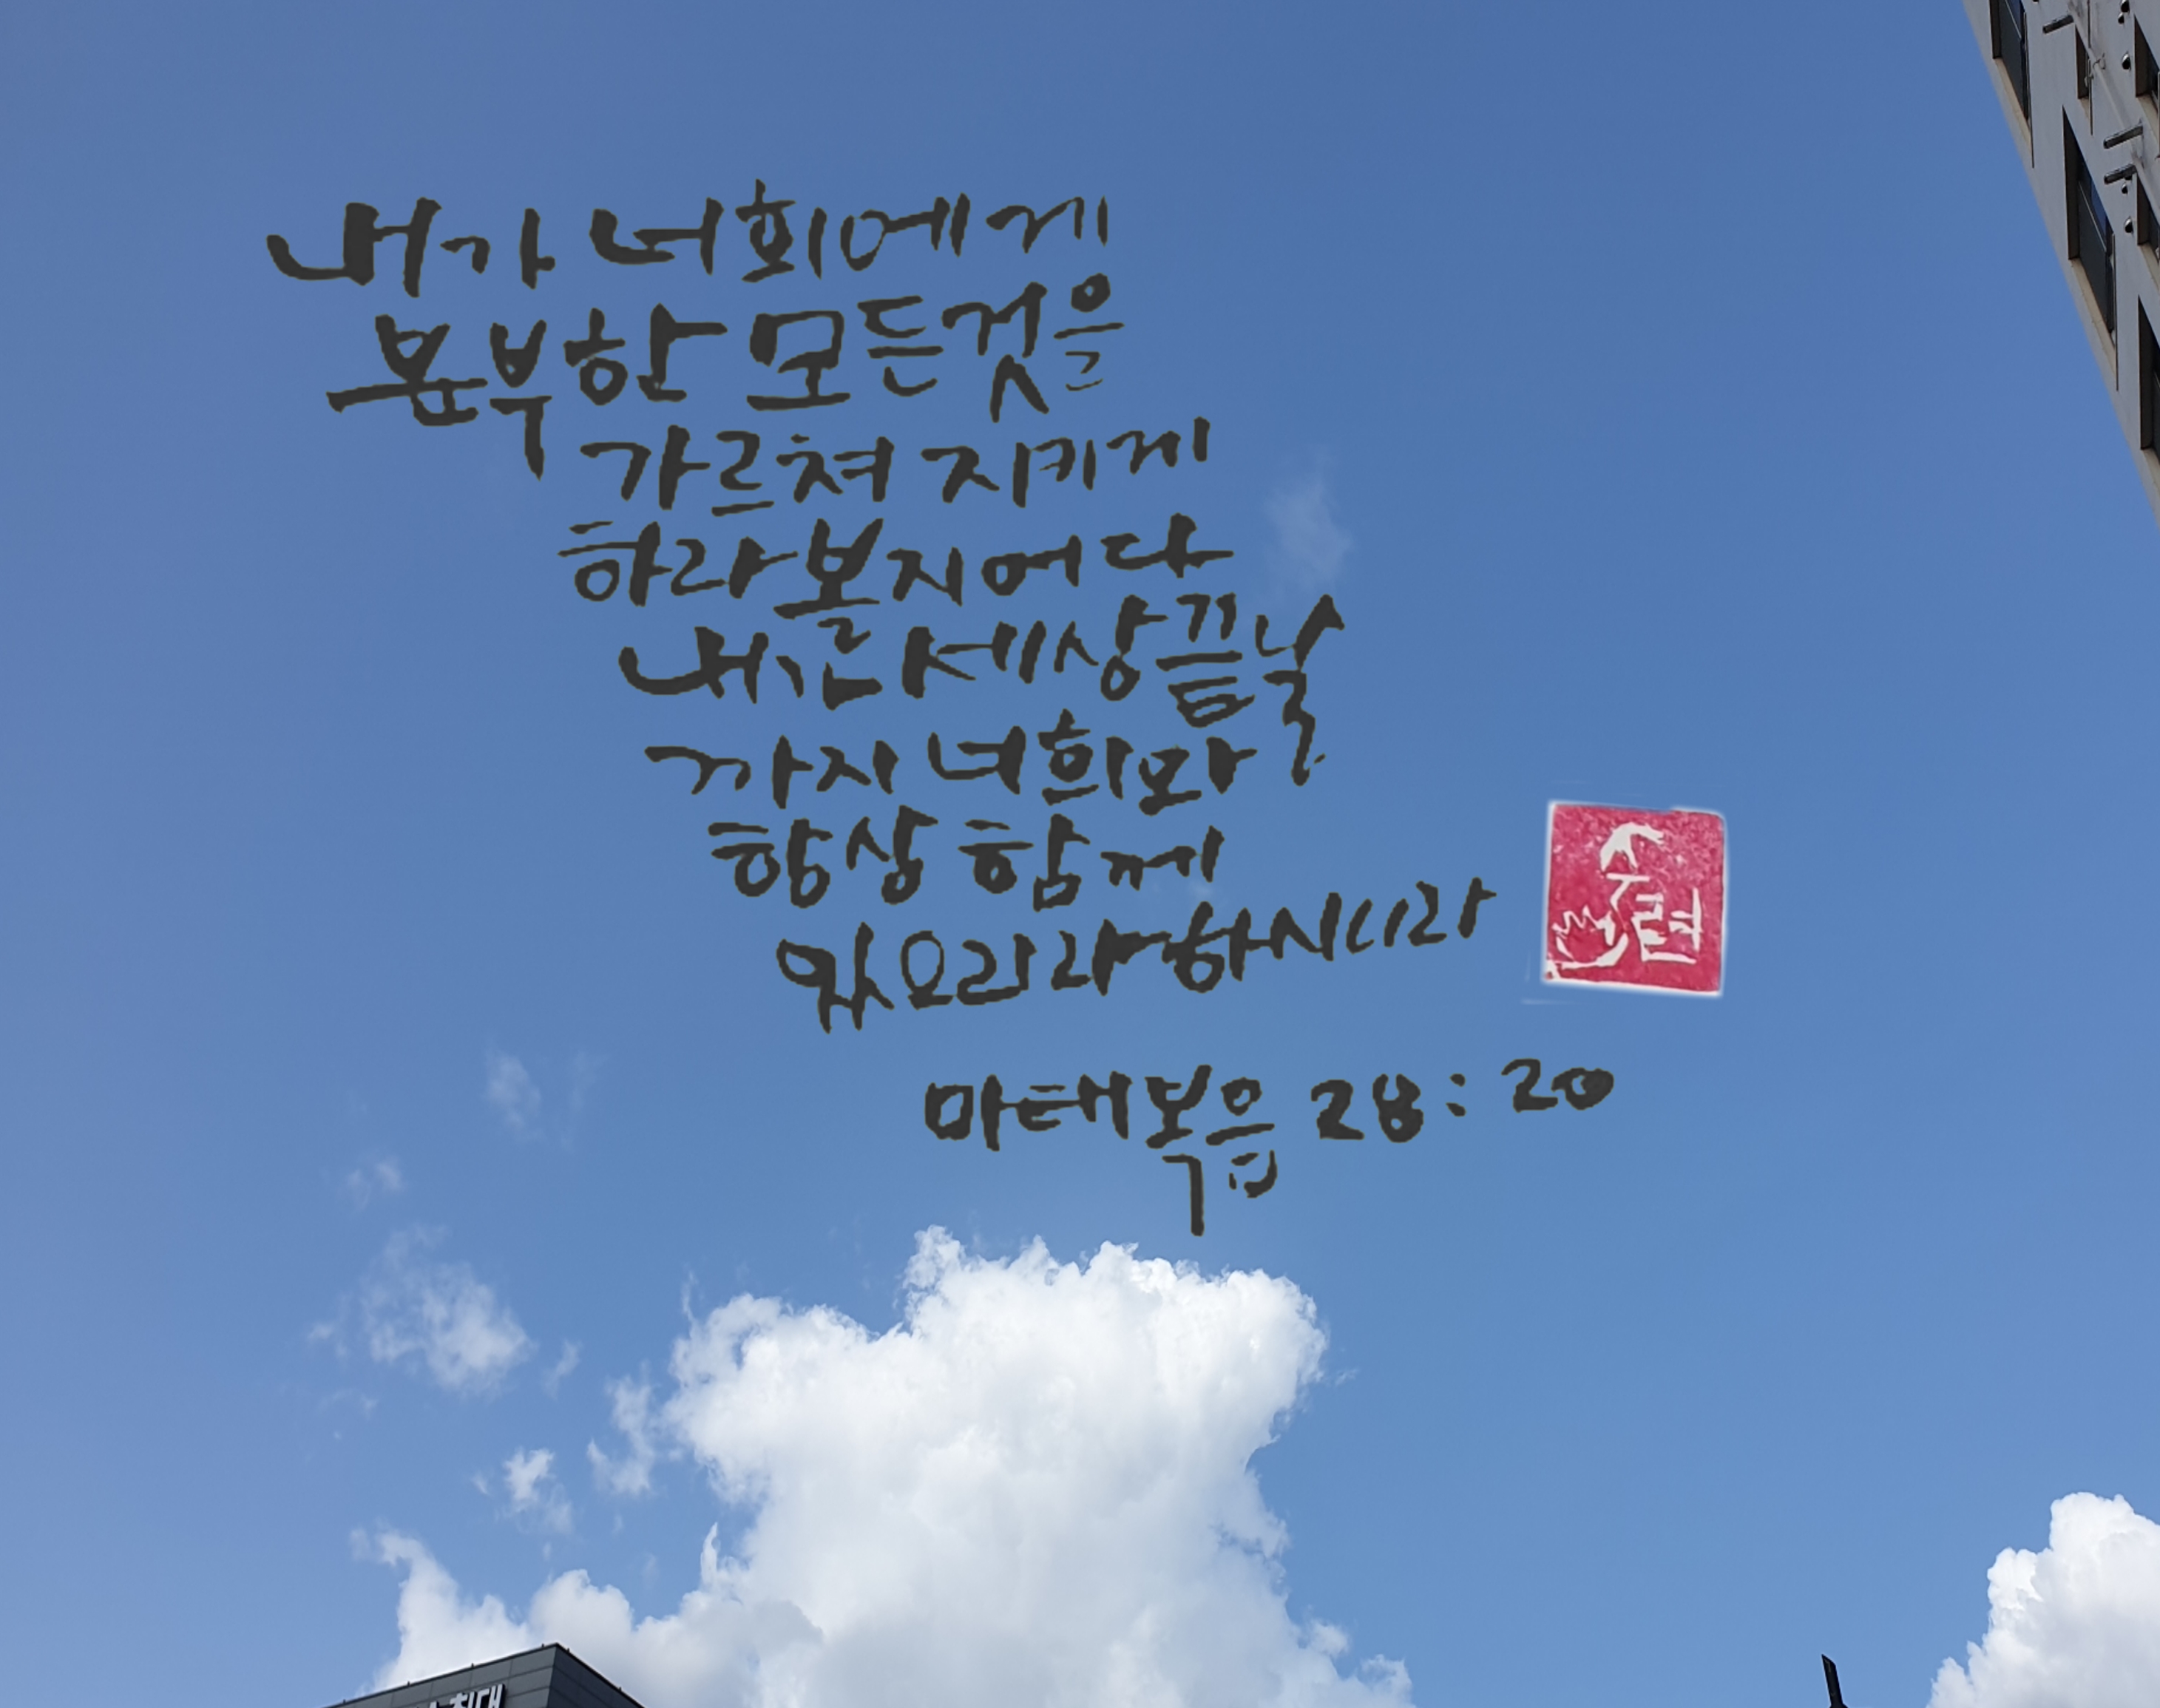 내가 너희에게
분부한 모든것을
가르쳐 지키게
하라 볼지어다
세상끝날
까지 너희와
항상 함께
있으리라하시니라
수련
마태복음 28:20